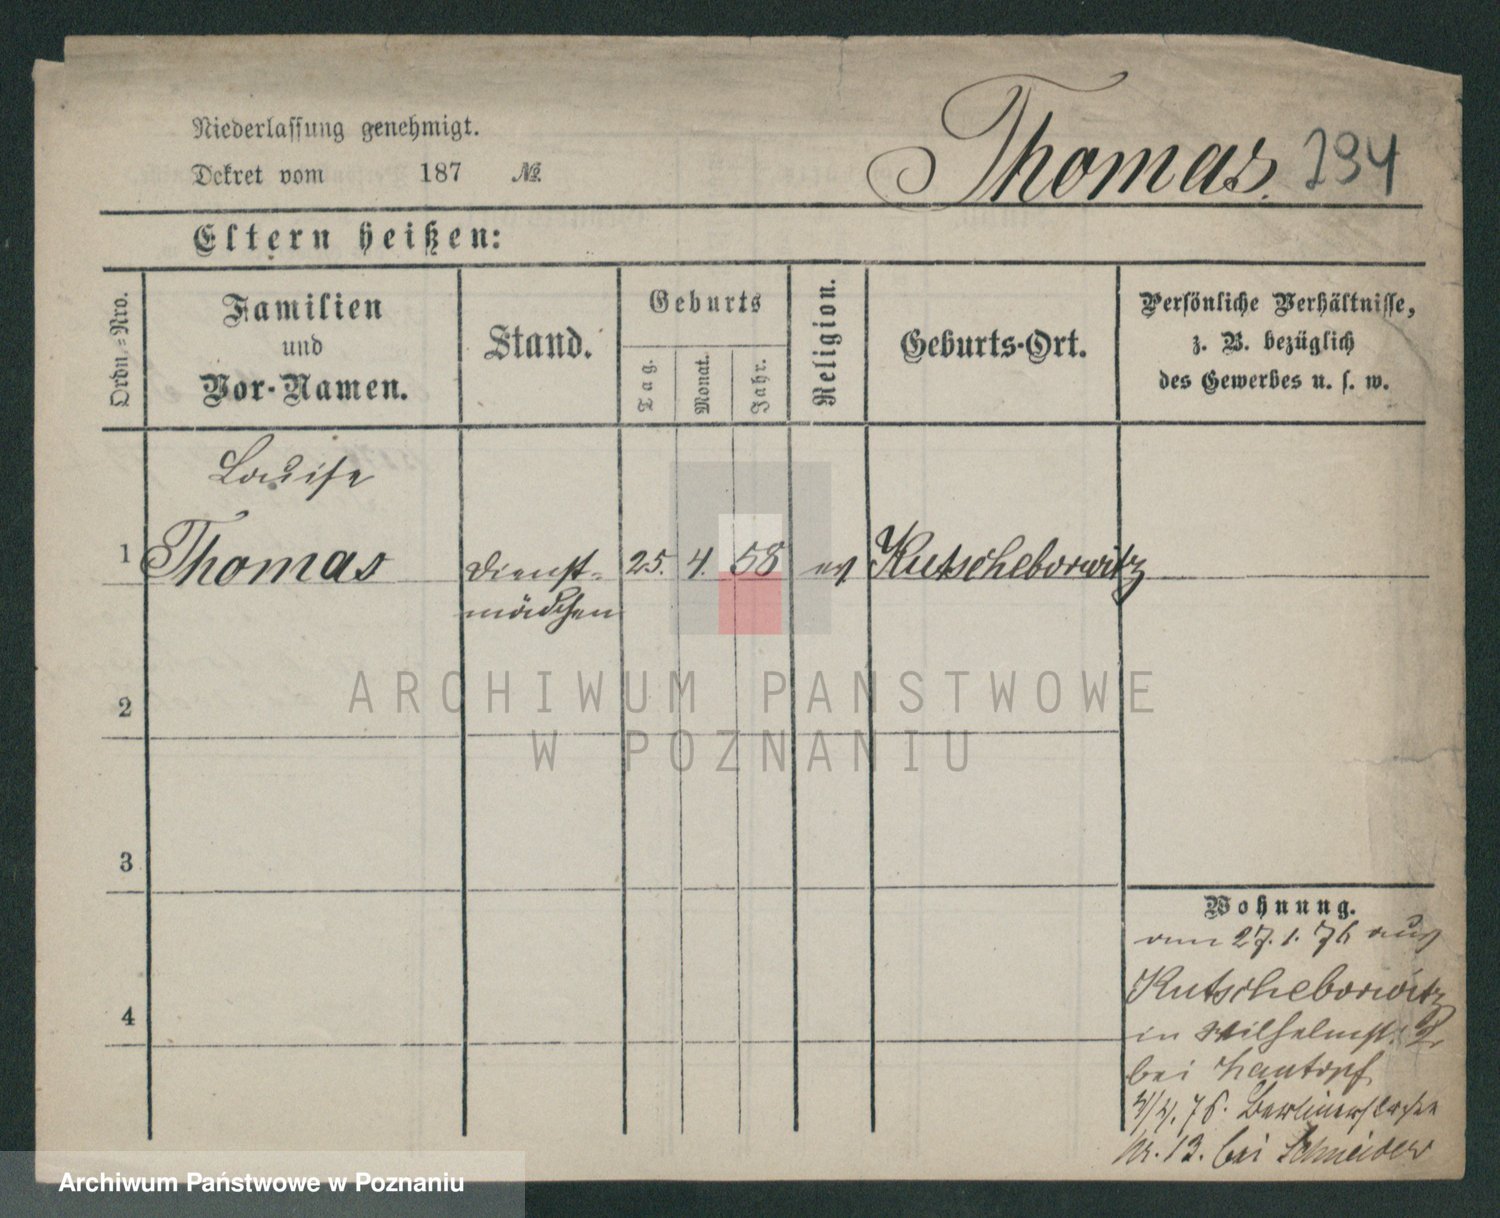 Niederlassung genehmigt.
Dekret vom 187 №
Thomas. 294
Eltern heißen:
Ordn.=Nro.
Familien
und
Vor-Namen.
Stand.
Geburts
Tag.
Monat.
Jahr.
Religion.
Geburts-Ort.
Persönliche Verhältnisse,
z. B. bezüglich
des Gewerbes u. s. w.
Louise
1 Thomas Dienst- 25. 4. 58 ev Kutscheborwitz
mädchen
2
3
4
Wohnung.
am 27. 1. 76 aus
Kutscheborwitz
in Wilhelmst. 2
bei
4/4. 76. Berlinerstrasse
Nr. 13. bei Schneider
ARCHIWUM PAŃSTWOWE
W POZNANIU
Archiwum Państwowe w Poznaniu